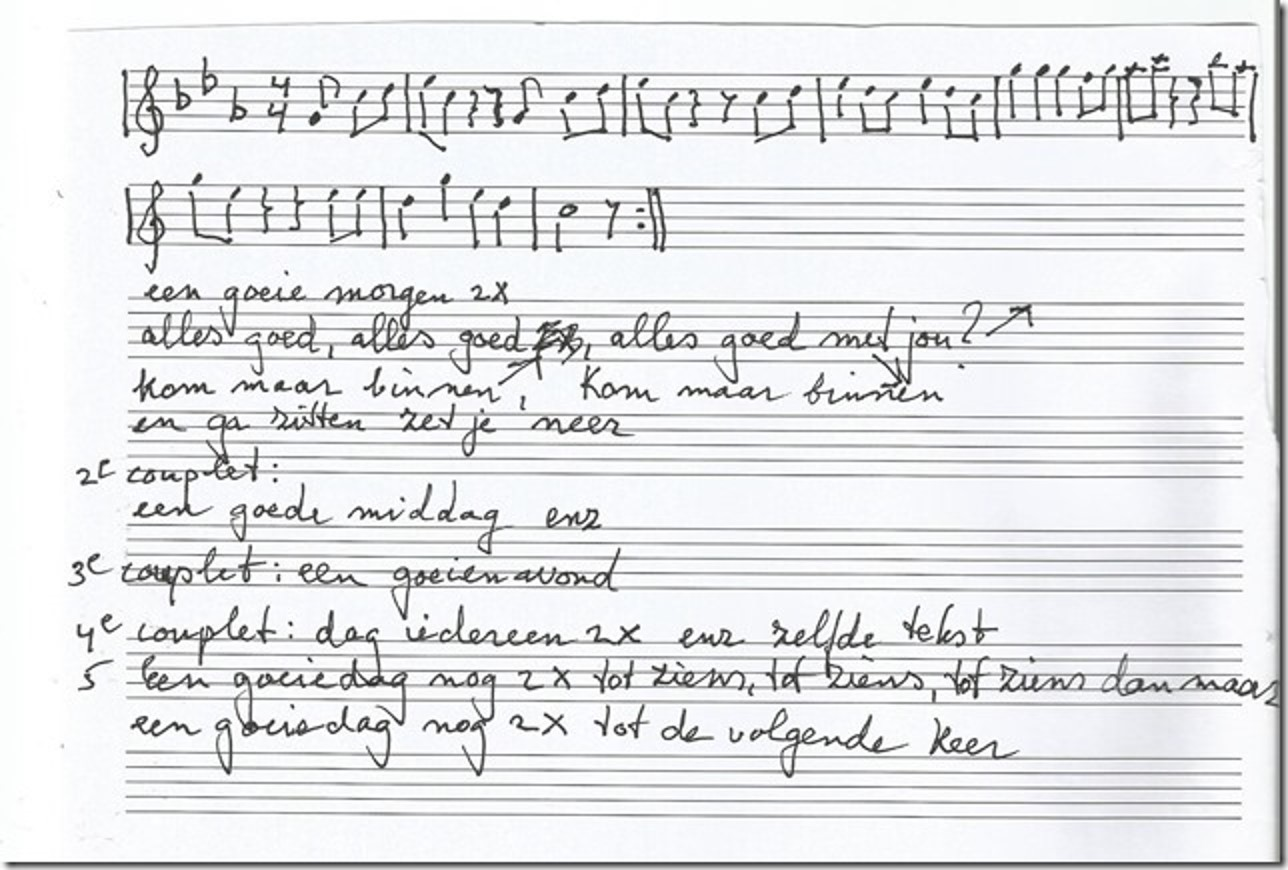 4
4
een goeie morgen 2x
alles goed, alles goed, alles goed met jou?
kom maar binnen, kom maar binnen
en ga zitten zet je neer
2e couplet:
een goede middag enz
3e couplet: een goeienavond
4e couplet: dag iedereen 2x enz zelfde tekst
5 een goeiedag nog 2x tot ziens, tot ziens, tot ziens dan maar
een goeiedag nog 2x tot de volgende keer